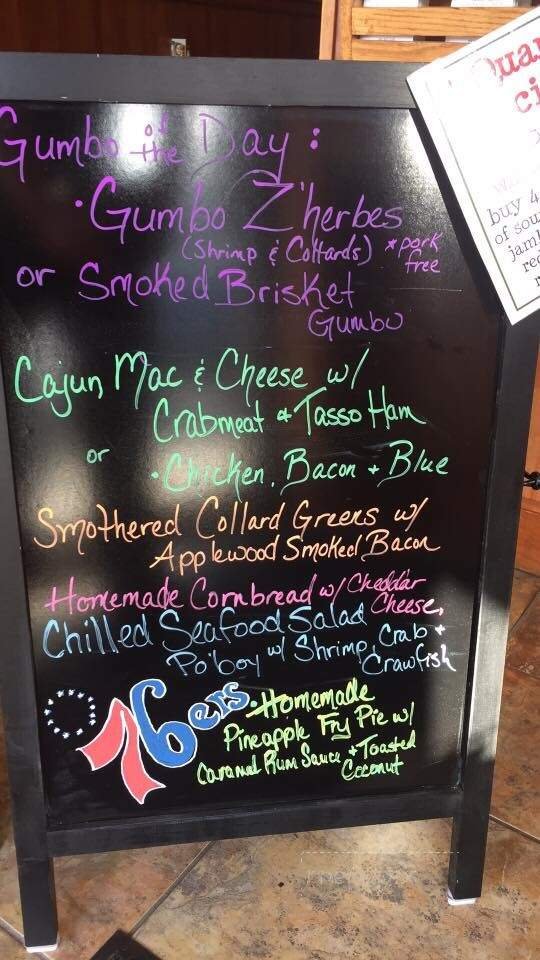 Gumbo of the Day :
• Gumbo Z'herbes
(Shrimp & Collards) *pork free
or Smoked Brisket
Gumbo
Cajun Mac & Cheese w/
Crabmeat & Tasso Ham
or
• Chicken, Bacon + Blue
Smothered Collard Greens w/
Applewood Smoked Bacon
Homemade Cornbread w/ Cheddar Cheese,
Chilled Seafood Salad
Po'boy w/ Shrimp, Crab + Crawfish
76ers
• Homemade
Pineapple Fry Pie w/
Caramel Rum Sauce + Toasted
Coconut
buy 4
of sou